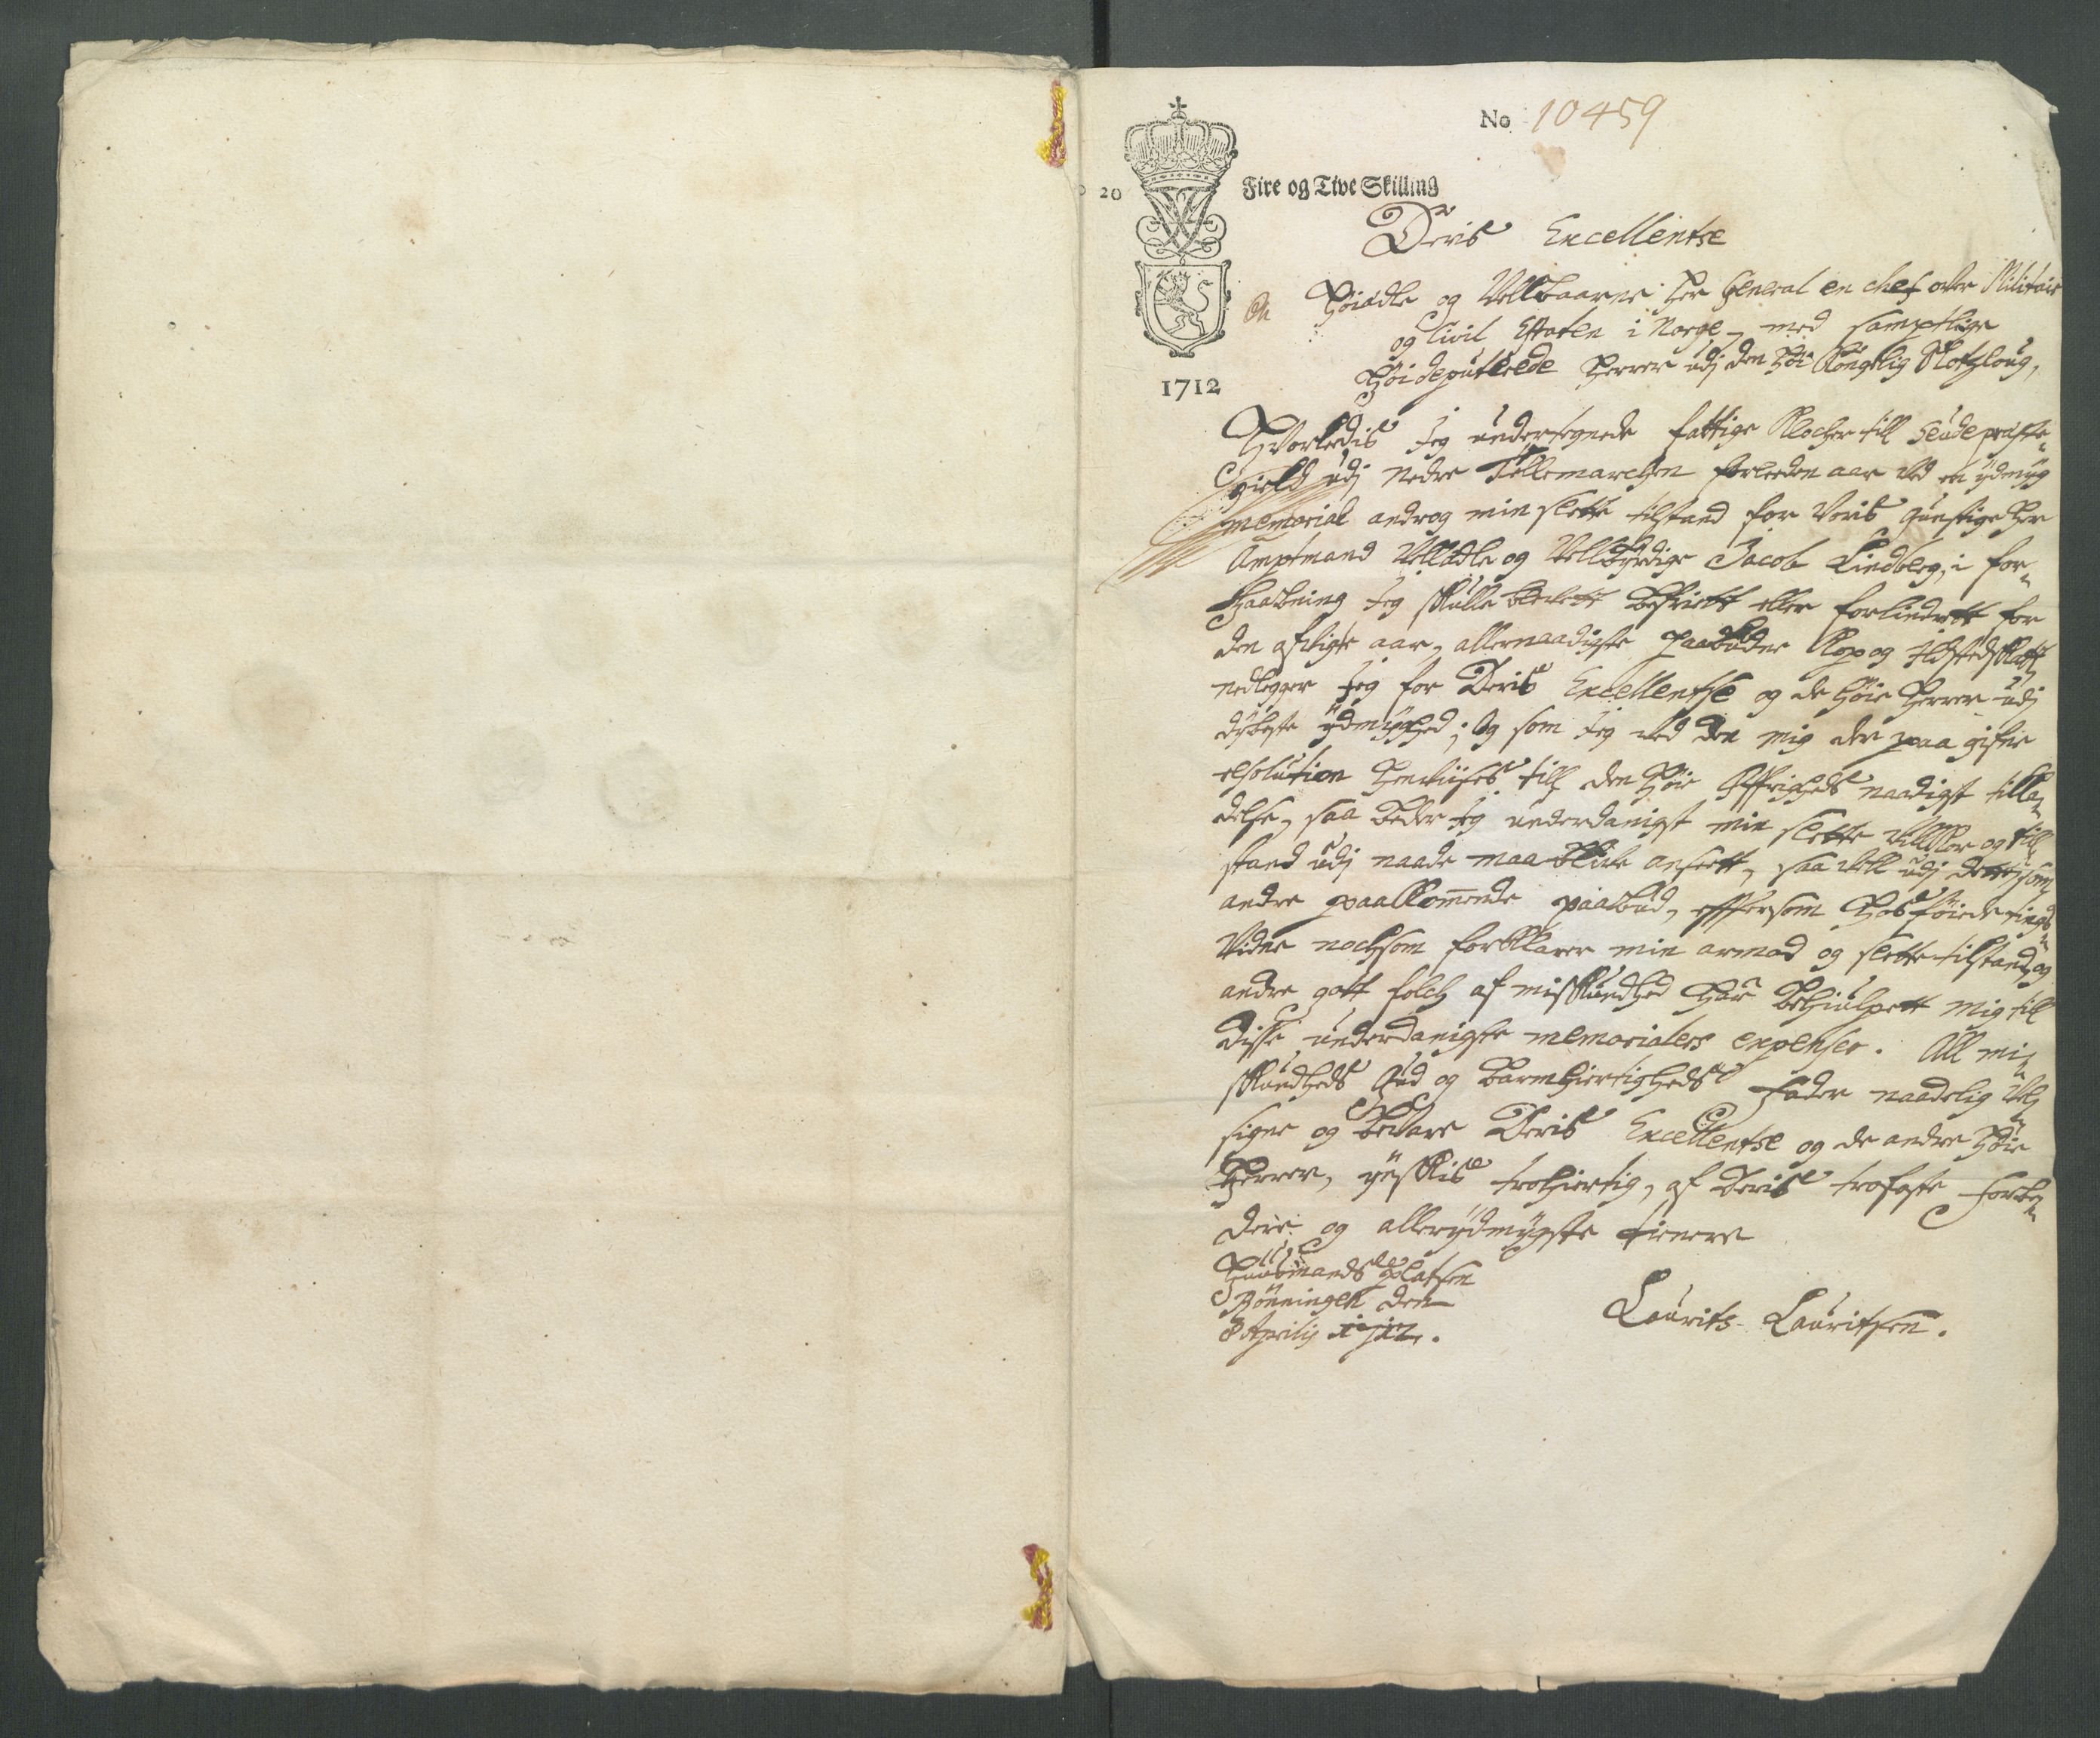 No 10459
20 Fire og Tive Skilling
Deris Excellentse
Høiædle og Vellbaarne Her General en chef over Militair
og Civil Estaten i Norge, med samptlige
Høideputerede Herrer udj den höi Kongelig Slotzloug,
1712
Hvorledis Jeg undertegnede fattige Klocher till Seude præste¬
gield udj Nedre Tellemarchen forleeden aar ved en ÿdmÿg
memorial androg min slette tilstand for Voris Gunstige Her
Amptmand VellÆdle og Vellbÿrdige Jacob Lindberg, i for¬
haabning Jeg skulle blevett befriett eller forlindrett for
den afvigte aar, allernaadigste paabudne Kop og Ildstedskatt
nedlegger Jeg for Deris Excellentse og de høie Herrer udj
dÿbeste ÿdmÿghed; Og som Jeg ved den mig der paa gifne
resolution henviises till den Høie Øfrigheds naadigst tilla¬
delse, saa beder Jeg underdanigst min slette villkor og till¬
stand udj naade maa blive anseett, saa vell udj dette, som
andre paakommende paabud, effersom Hosføiede tings¬
vidne nochsom forklarer min armod og slette tilstand, og
andre gott folch af miskundhed har behiulpett mig till
disse underdanigste memorialers expenser. All mi¬
skundheds Gud og barmhiertigheds Fader naadelig Vel¬
signe og bevare Deris Excellentse og de andre Høie
Herrer, ÿnskis trohiertig, af Deris trofaste forbe¬
dere og allerÿdmÿgste tienere
Huusmands platsen
Bönningen den
8 Aprilis 1712.
Laurits Lauritsen.